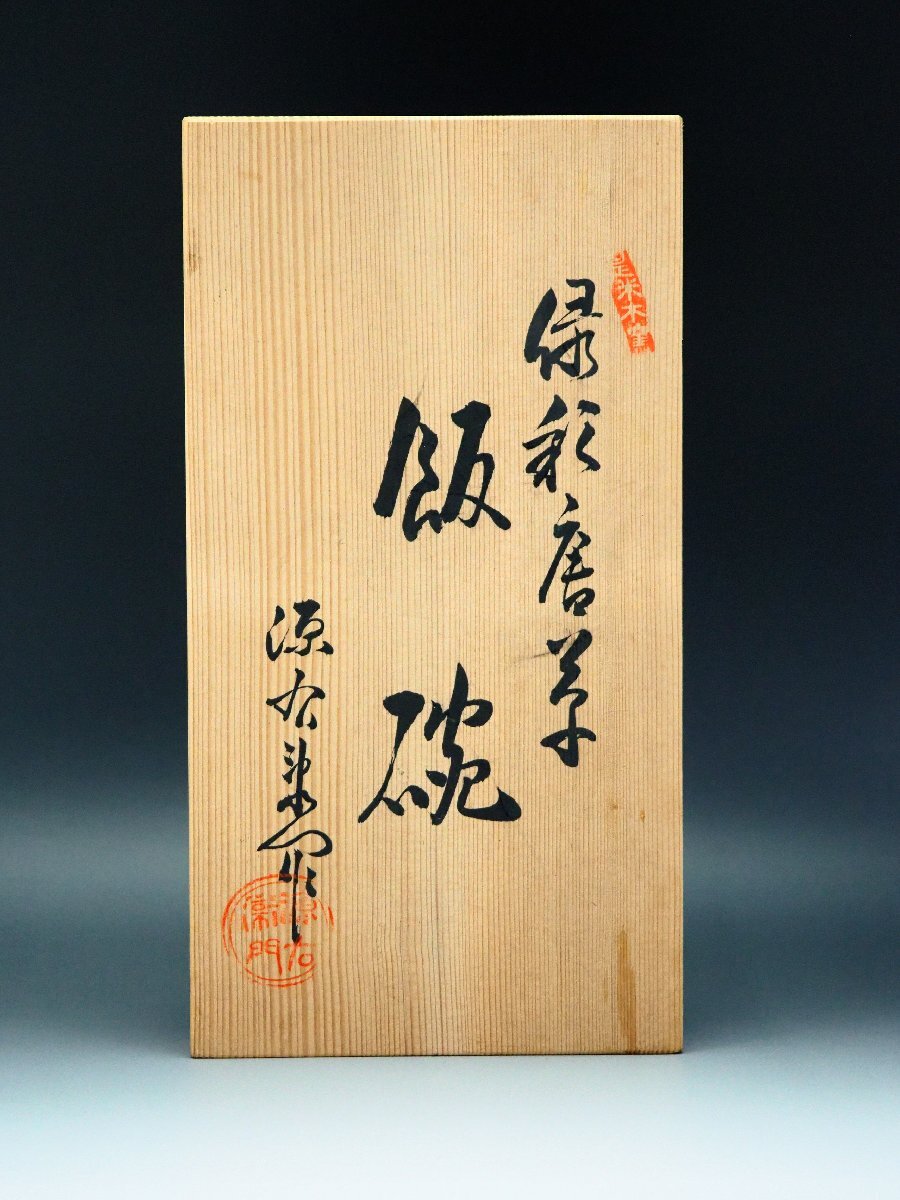 緑彩唐草
飯碗
源右衛門作